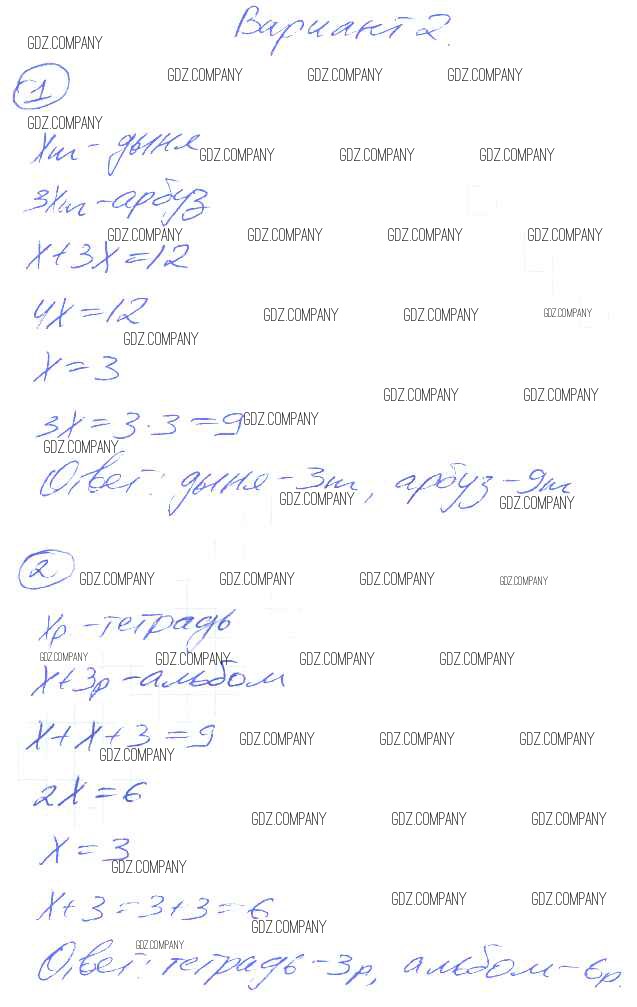 Вариант 2.
GDZ.COMPANY
GDZ.COMPANY GDZ.COMPANY GDZ.COMPANY
1
GDZ.COMPANY
Xш - дыня
GDZ.COMPANY GDZ.COMPANY GDZ.COMPANY
3Xш - арбуз
GDZ.COMPANY GDZ.COMPANY GDZ.COMPANY GDZ.COMPANY
X+3X=12
4X=12
GDZ.COMPANY GDZ.COMPANY GDZ.COMPANY
GDZ.COMPANY
X=3
GDZ.COMPANY GDZ.COMPANY
3X=3·3=9
GDZ.COMPANY
GDZ.COMPANY
Ответ: дыня - 3ш, арбуз - 9ш
GDZ.COMPANY GDZ.COMPANY
2
GDZ.COMPANY GDZ.COMPANY GDZ.COMPANY GDZ.COMPANY
Xр - тетрадь
GDZ.COMPANY GDZ.COMPANY GDZ.COMPANY GDZ.COMPANY
X+3р - альбом
X+X+3=9
GDZ.COMPANY GDZ.COMPANY GDZ.COMPANY
GDZ.COMPANY
2X=6
GDZ.COMPANY GDZ.COMPANY GDZ.COMPANY
X=3
GDZ.COMPANY
X+3=3+3=6
GDZ.COMPANY GDZ.COMPANY
GDZ.COMPANY
GDZ.COMPANY
Ответ: тетрадь - 3р, альбом - 6р.